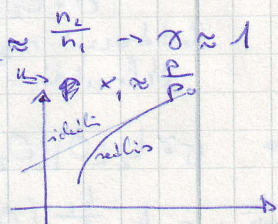 ≈ n₂/n₁ → γ ≈ 1
x₁ ≈ p/p₀
ideális
reális